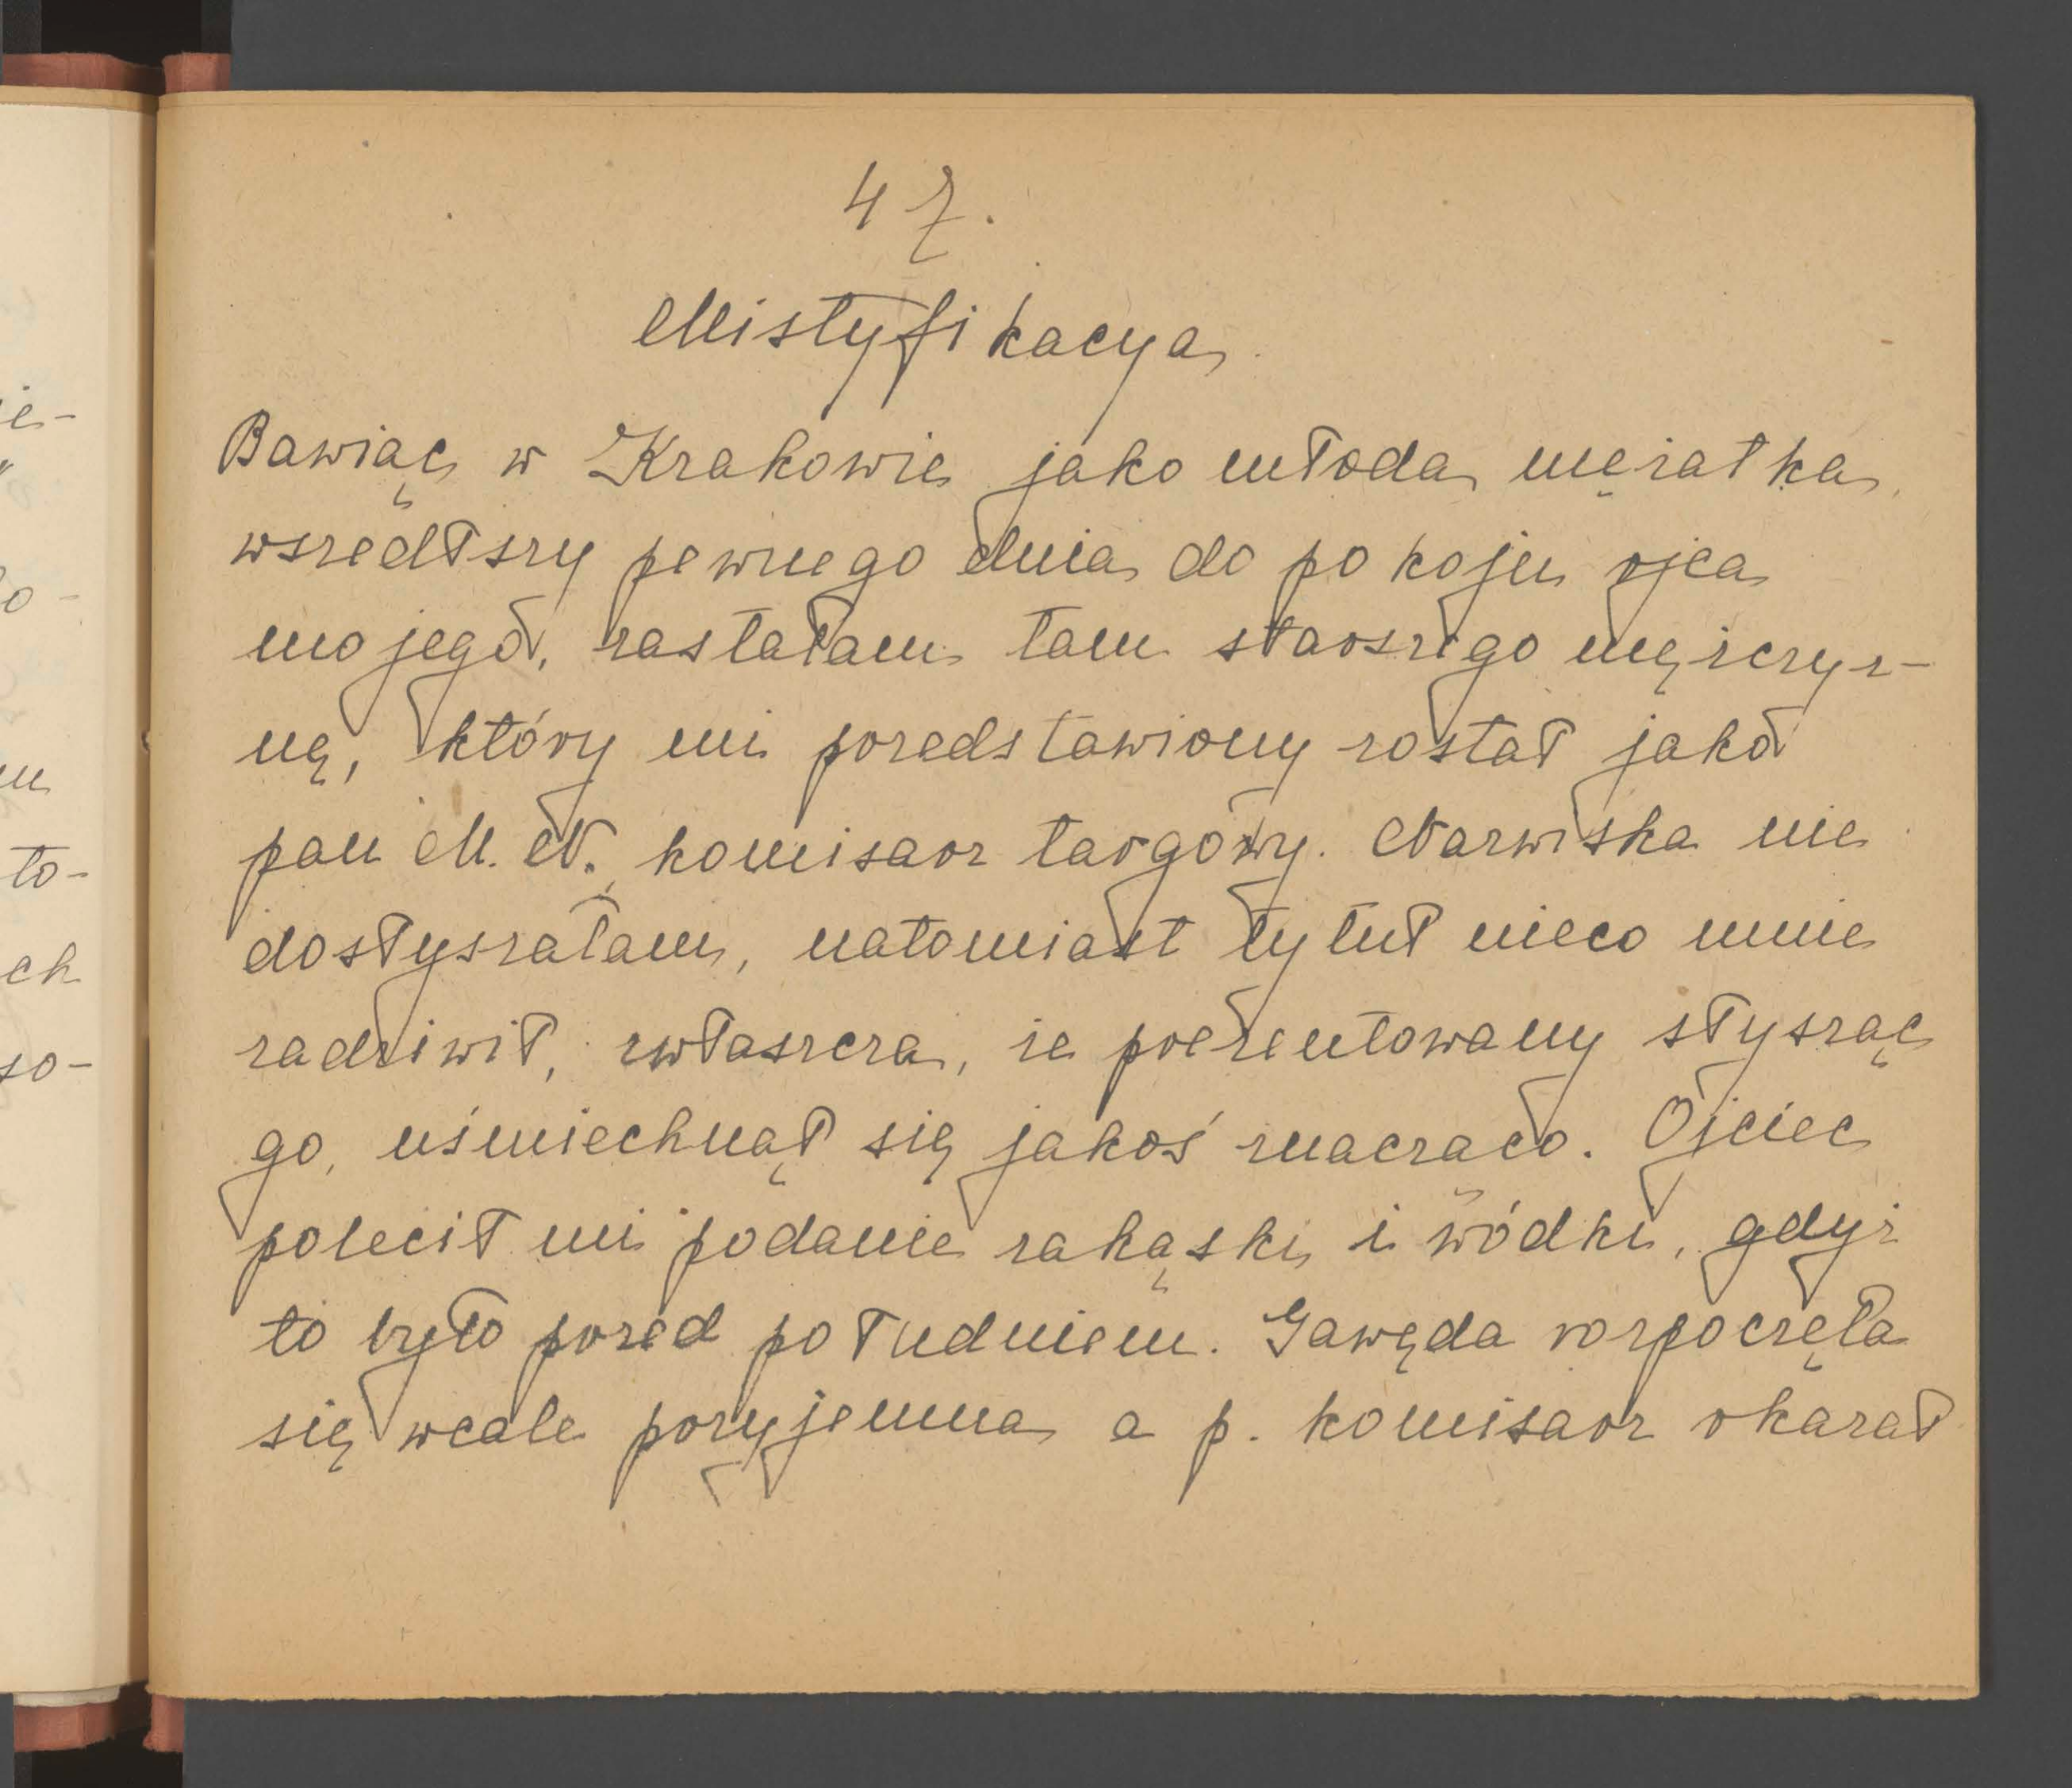 ie-
"
to-
m
to-
ch
so-
47.
Mistyfikacya
Bawiąc w Krakowie jako młoda mężatka,
wszedłszy pewnego dnia do pokoju ojca
mojego, zastałam tam starszego mężczyz-
nę, który mi przedstawiony został jako
pan M. N. komisarz targowy. Nazwiska nie
dosłyszałam, natomiast tytuł nieco mnie
zadziwił, zwłaszcza, że prezentowany słysząc
go, uśmiechnął się jakoś znacząco. Ojciec
polecił mi podanie zakąski i wódki, gdyż
to było przed południem. Gawęda rozpoczęła
się wcale przyjemna a p. komisarz okazał